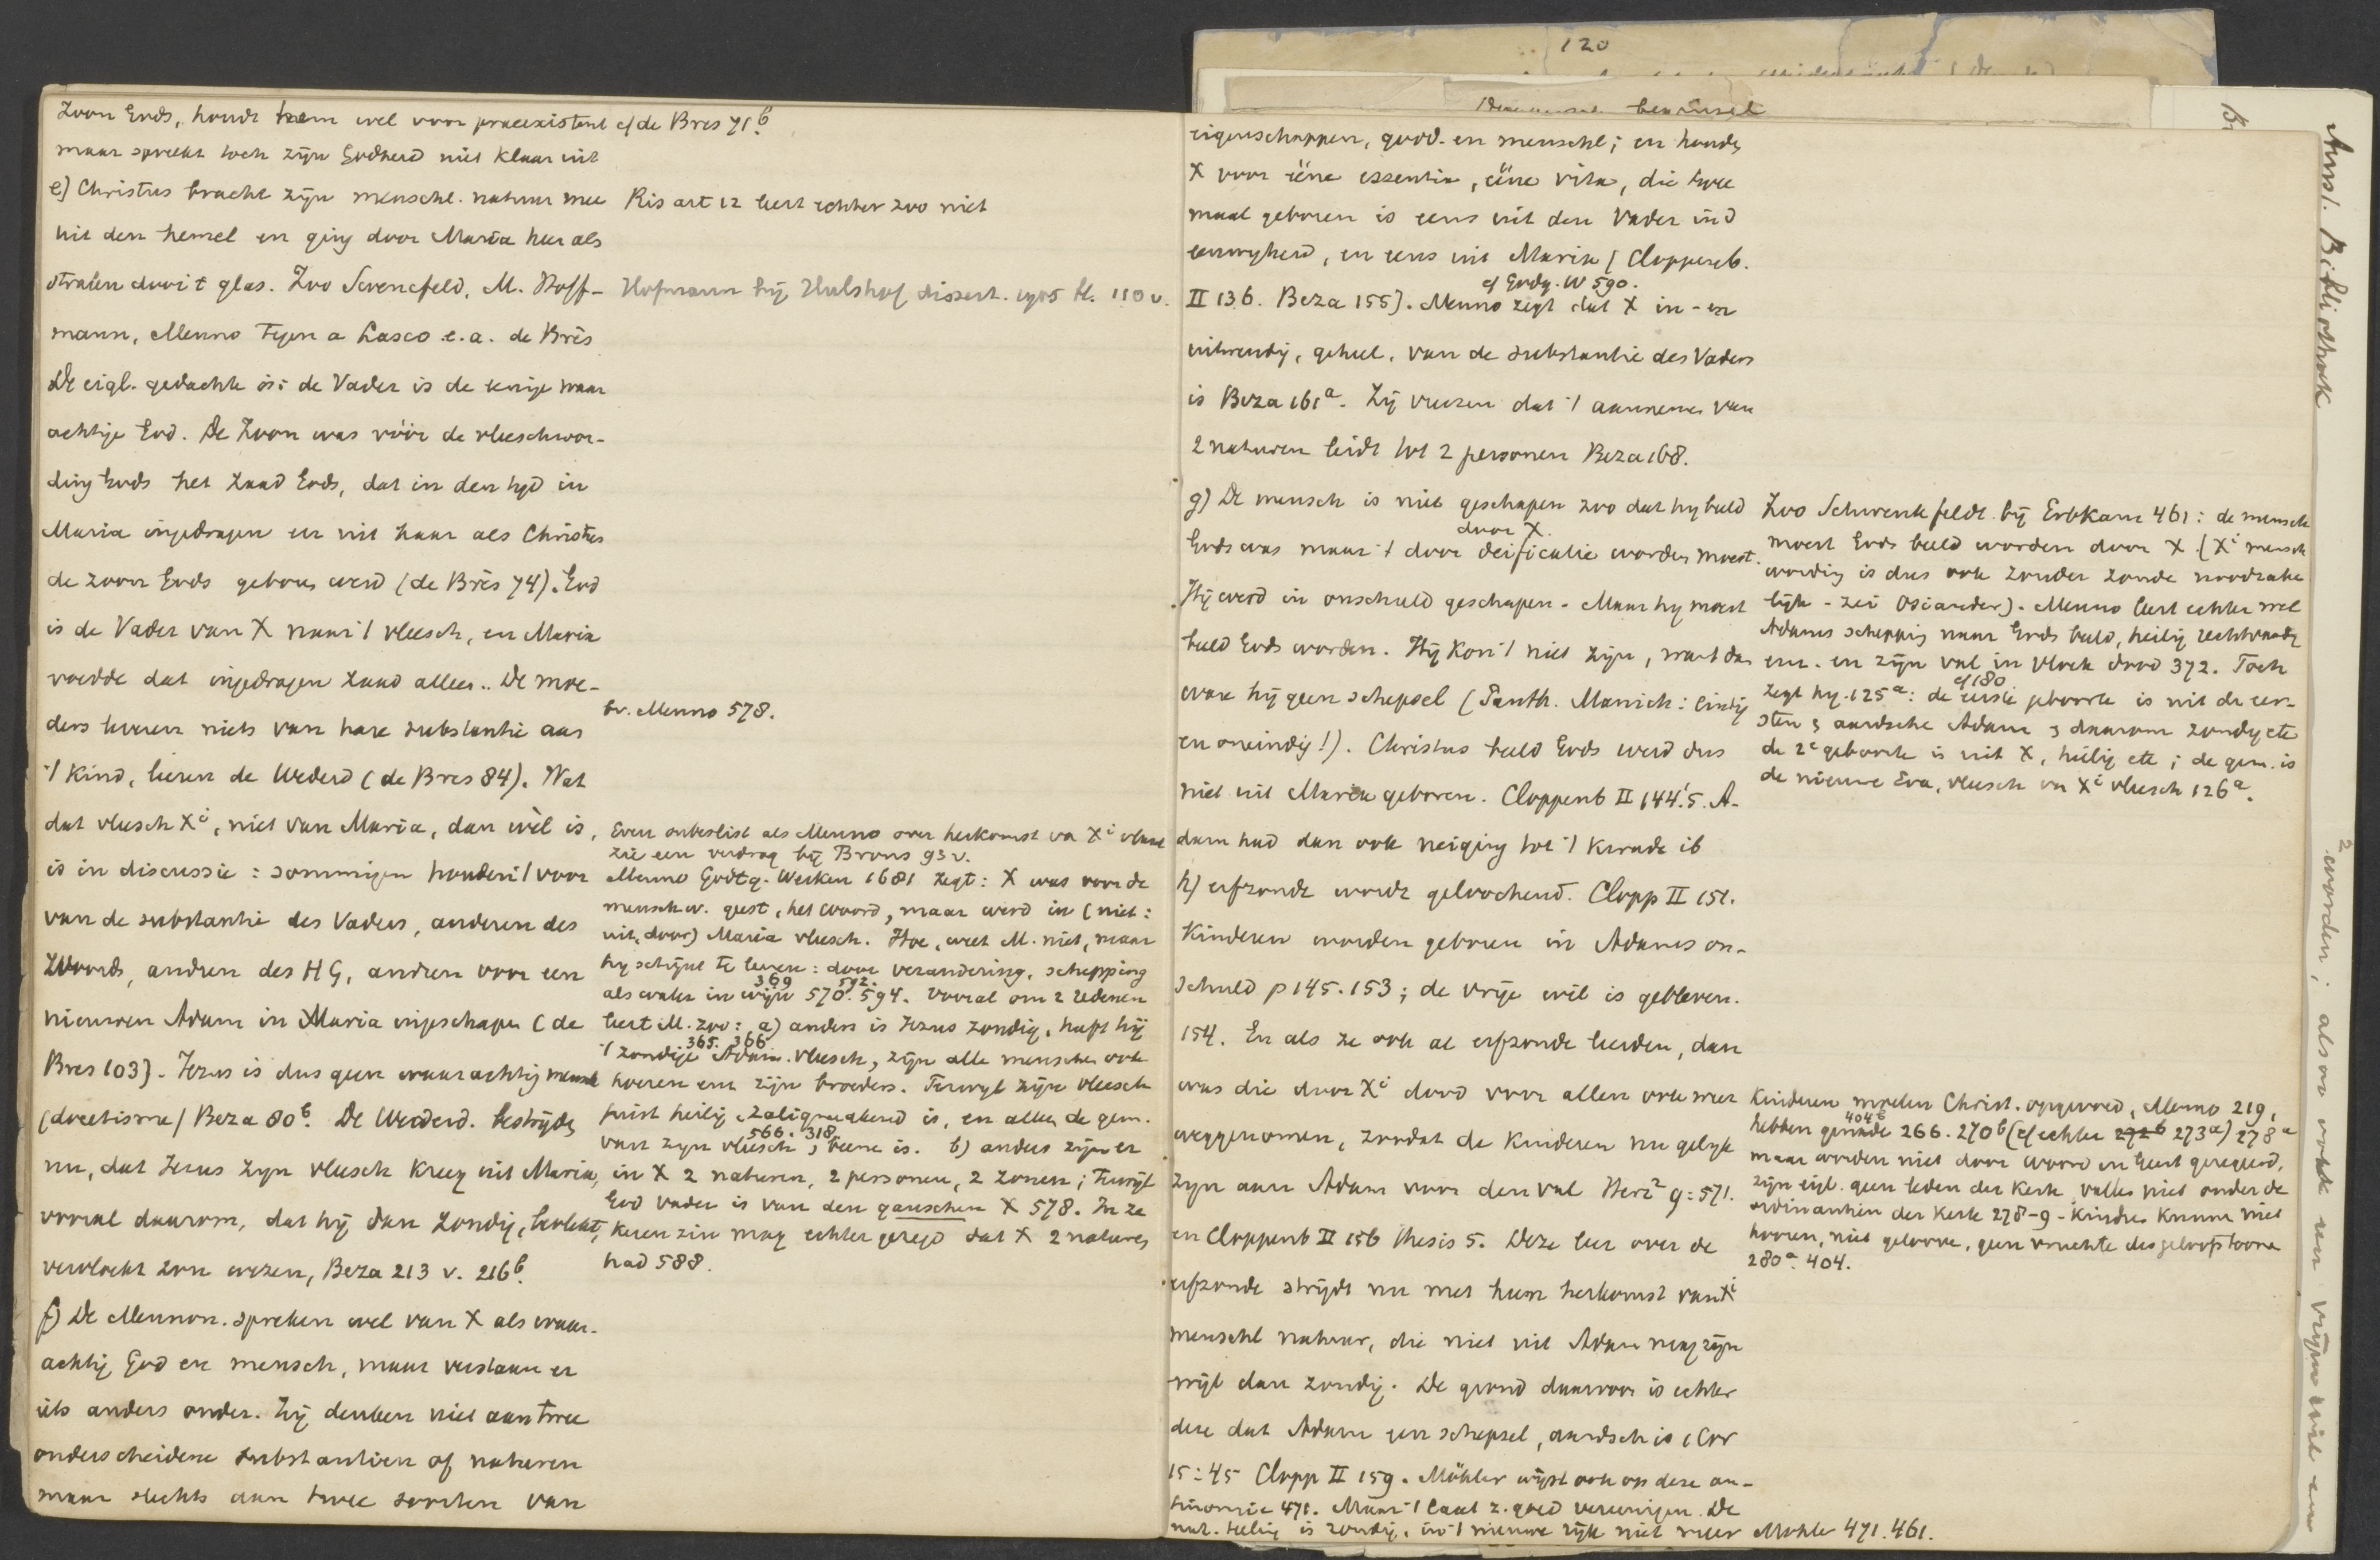 Zoon Gods, houdt hem wel voor praeexistent
maar spreekt toch zijn Godheid niet klaar uit
e) Christus bracht zijn menschl. natuur mee
uit den hemel en ging door Maria heen als
stralen door 't glas. Zoo Svencfeld, M. Hoff-
mann, Menno tegen a Lasco e.a. de Brès
De eigl. gedachte is: de Vader is de eenige waar
achtige God. De Zoon was vóór de vleeschwor-
ding Gods het zaad Gods, dat in den tijd in
Maria ingedragen en uit haar als Christus
de zoon Gods geboren werd (de Brès 74). God
is de Vader van X naar 't vleesch, en Maria
voedde dat ingedragen zaad alleen. De moe-
ders leveren niets van hare substantie aan
't kind, leeren de Wederd (de Bres 84). Wat
dat vleesch Xi, niet van Maria, dan wèl is,
is in discussie: sommigen houden 't voor
van de substantie des Vaders, anderen des
Woords, andren des HG, andren voor een
nieuwen Adam in Maria ingeschapen (de
Bres 103). Jezus is dus geen waarachtig mensch
(docetisme) Beza 80b. De Wederd. bestrijden
nu, dat Jezus zijn vleesch kreeg uit Maria,
vooral daarom, dat hij dan zondig, bevlekt,
vervloekt zou wezen, Beza 213 v. 216b.
f) De Mennon. spreken wel van X als waar-
achtig God en mensch, maar verstaan er
iets anders onder. Zij denken niet aan twee
onderscheidene substantien of naturen
maar slechts aan twee soorten van
cf de Bres 71b.
Ris art 12 leert echter zoo niet
Hofmann bij Hulshof dissert. 1905 bl. 110 v.
bv. Menno 578.
Even onbeslist als Menno over herkomst van Xi vleesch
zie een verdrag bij Brons 93 v.
Menno Godtg. Werken 1681 zegt: X was voor de
menschw. geest, het woord, maar werd in (niet:
uit, door) Maria vleesch. Hoe, weet M. niet, maar
hij schijnt te leeren: door verandering, schepping
369 592.
als water in wijn 570. 594. Vooral om 2 redenen
leert M. zoo: a) anders is Jezus zondig, heeft hij
365. 366
't zondige Adam. vleesch, zijn alle menschen ook
hoeren enz zijn broeders. Terwijl zijn vleesch
juist heilig, zaligmakend is, en alleen de gem.
566. 318
van zijn vleesch, beene is. b) anders zijn er
in X 2 naturen, 2 personen, 2 zonen; terwijl
God Vader is van den ganschen X 578. In ze
keren zin mag echter gezegd dat X 2 naturen
had 588.
120
eigenschappen, godd. en menschl; en houden
X voor ééne essentia, ééne vita, die twee
maal geboren is eens uit den Vader in d
eeuwigheid, en eens uit Maria (Cloppenb.
cf Godg. W 590.
II 136. Beza 155). Menno zegt dat X in- en
uitwendig, geheel, van de substantie des Vaders
is Beza 161a. Zij vreezen dat 't aannemen van
2 naturen leidt tot 2 personen Beza 168.
g) De mensch is niet geschapen zoo dat hij beeld
door X.
Gods was maar 't door deificatie worden moest.
Hij werd in onschuld geschapen. Maar hij moest
beeld Gods worden. Hij kon 't niet zijn, want dan
ware hij geen schepsel (Panth. Manich: eindig
en oneindig!). Christus beeld Gods werd dus
niet uit Maria geboren. Cloppenb II 144.'5. A-
dam had dan ook neiging tot 't kwade ib
h) erfzonde wordt geloochend. Clopp II 151.
Kinderen worden geboren in Adams on-
schuld p 145. 153; de vrije wil is gebleven.
154. En als ze ook al erfzonde leerden, dan
was die door Xi dood voor allen ook weer
weggenomen, zoodat de kinderen nu gelijk
zijn aan Adam voor den val Herz2 9:571.
en Cloppenb II 156 thesis 5. Deze leer over de
erfzonde strijdt nu met hun herkomst van Xi
menschl natuur, die niet uit Adam mag zijn
wijl dan zondig. De grond daarvoor is echter
deze dat Adam een schepsel, aardsch is 1 Cor
15:45 Clopp II 159. Möhler wijst ook op deze an-
tinomie 471. Maar 't laat z. goed vereenigen. De
nat. teeling is zondig, in 't nieuwe rijk niet meer
Zoo Schwenkfeldt bij Erbkam 461: de mensch
moest Gods beeld worden door X (Xi mensch
wording is dus ook zonder zonde noodzake
lijk - zei Osiander). Menno leert echter wel
Adams schepping naar Gods beeld, heilig rechtvaardig
enz. en zijn val in vloek dood 372. Toch
cf 180
zegt hij 125a: de eerste geboorte is uit de eer-
sten & aardsche Adam & daarom zondig etc
de 2e geboorte is uit X, heilig etc; de gem. is
de nieuwe Eva, vleesch van Xi vleesch 126a.
Kinderen moeten Christ. opgevoed, Menno 219,
404b
hebben genade 266. 270b (cf echter 272b 273a) 278a
maar worden niet door woord en Geest geregeerd,
zijn eigl. geen leden der kerk, vallen niet onder de
ordinantien der kerk 278-9 - Kindren kunnen niet
hooren, niet gelooven, geen vruchten des geloofs toonen
280a. 404.
Möhler 471. 461.
Amst. Bibliotheek
2 worden; alsoo ook een vrijen wil en